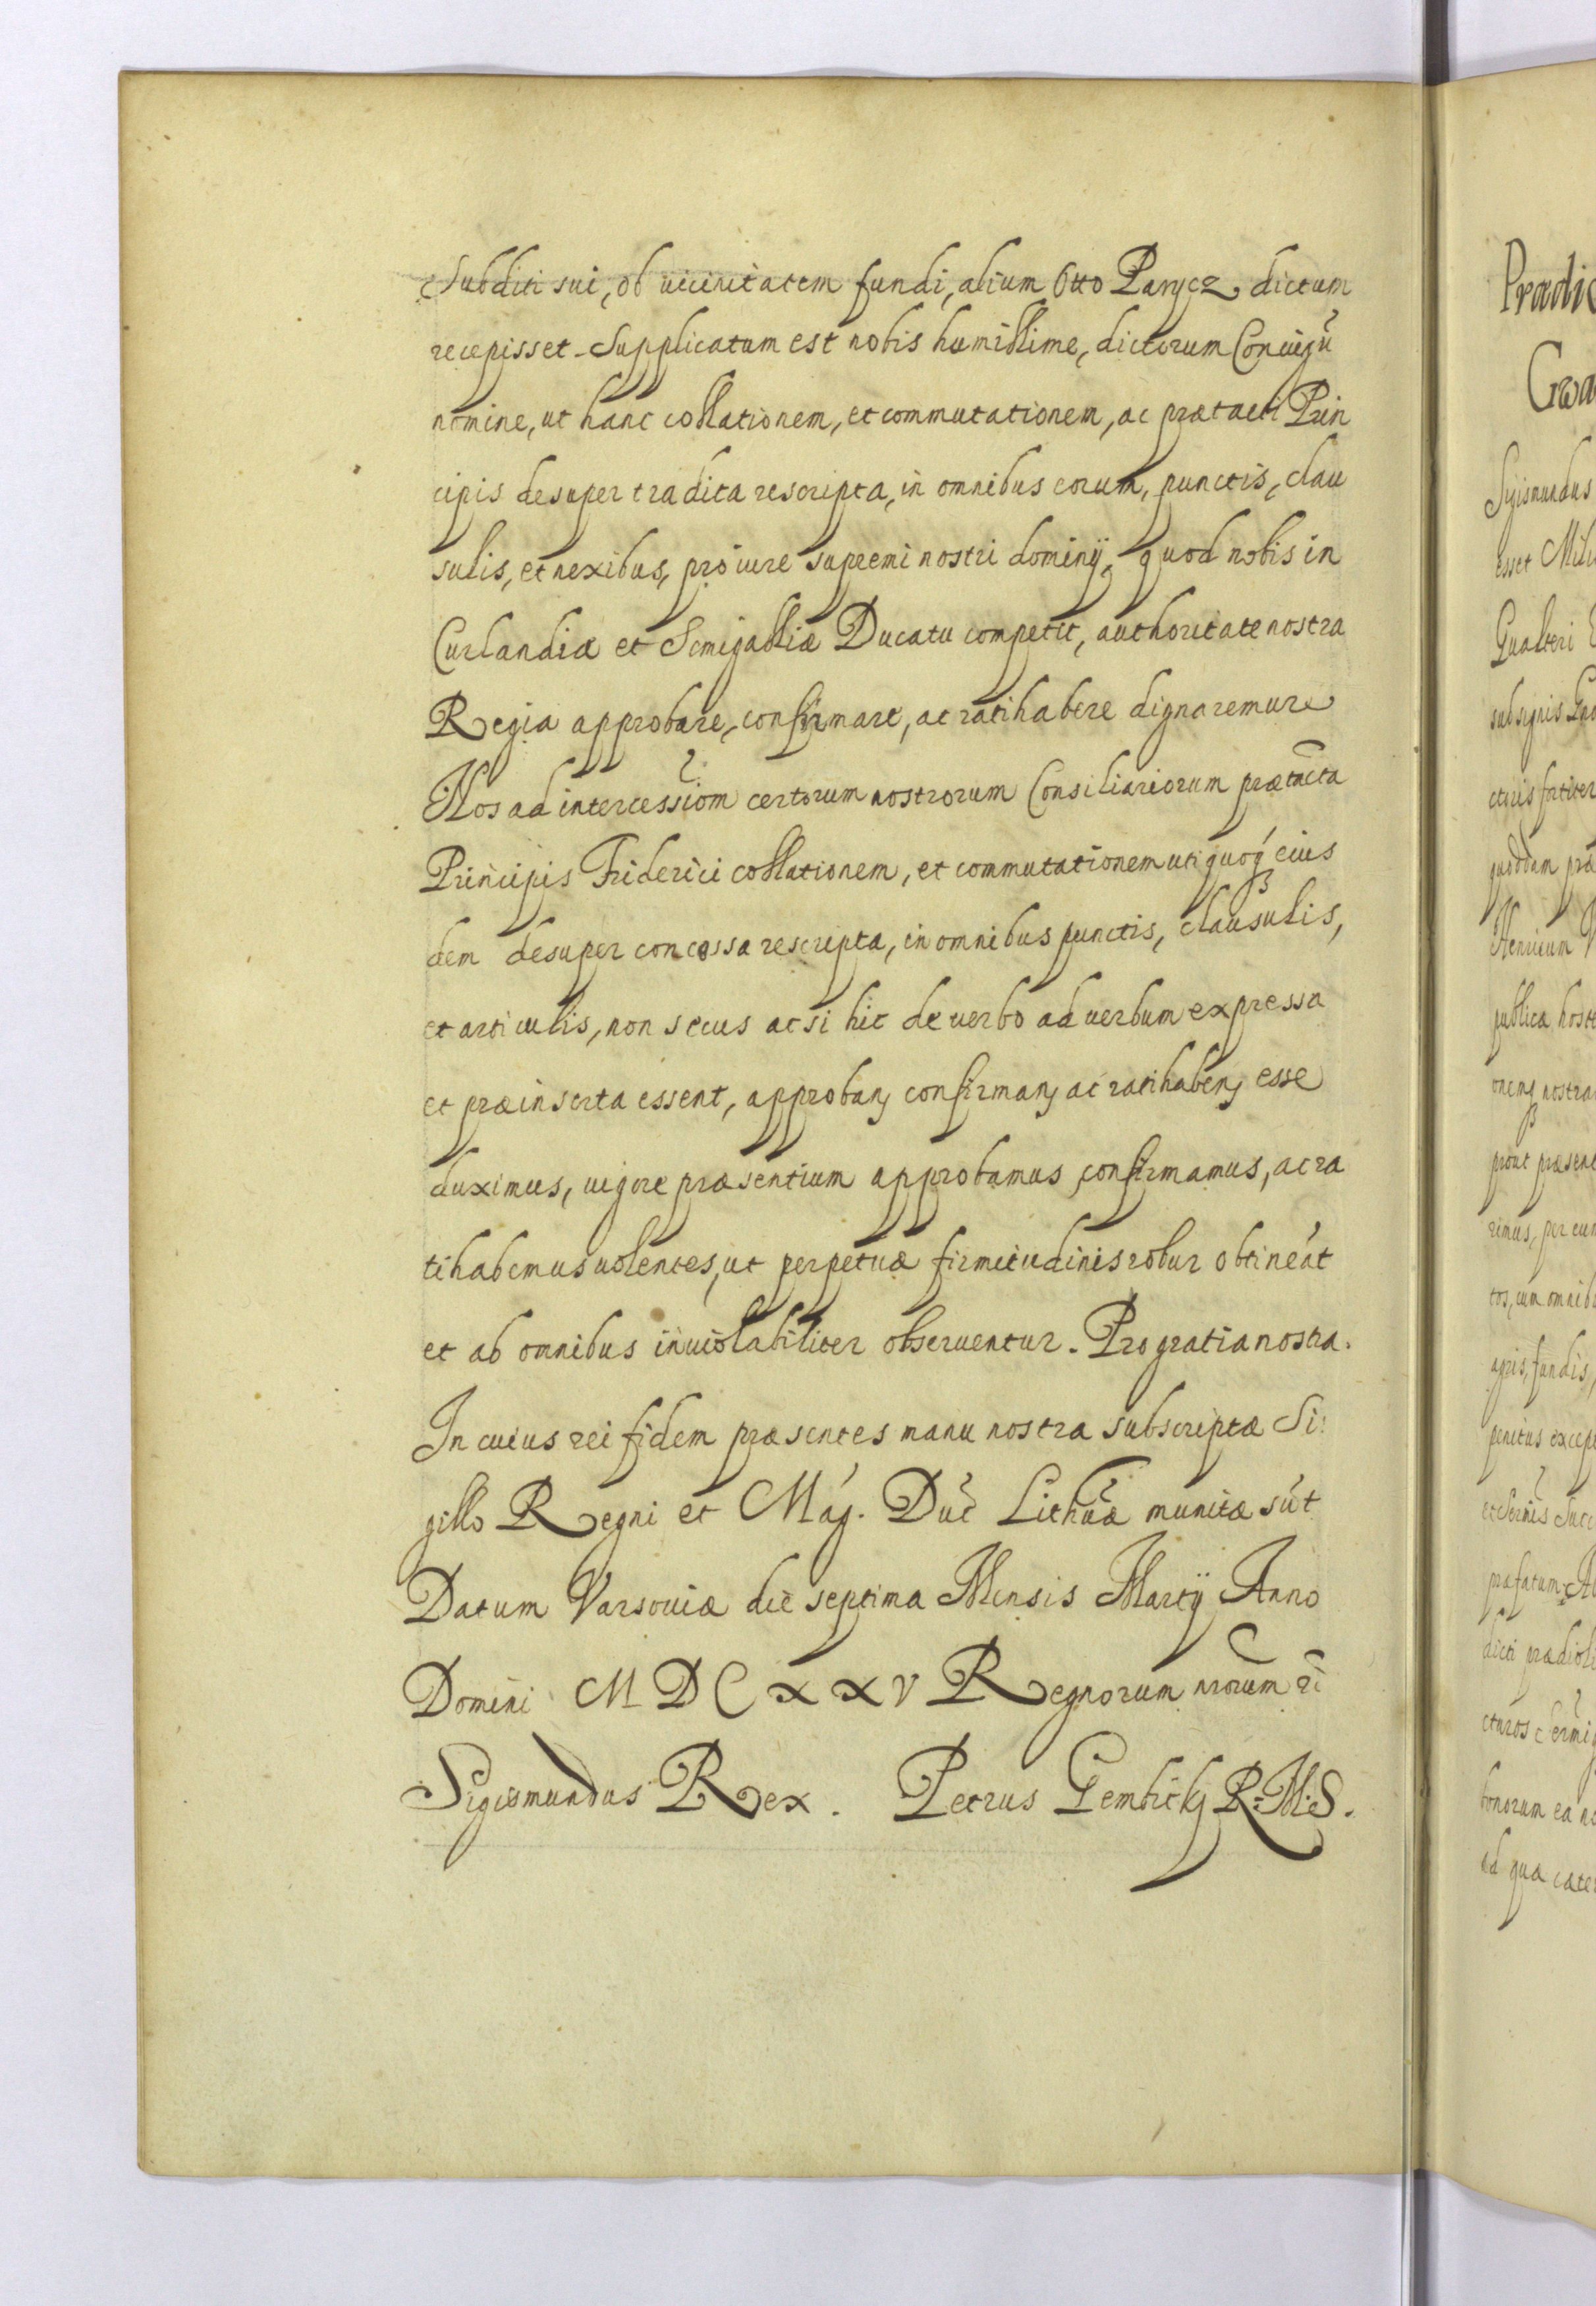 Subditi sui, ob vicinitatem fundi, alium Otto Parycz dictum
recepisset. Supplicatum est nobis humillime, dictorum Coniugū
nomine, ut hanc collationem, et commutationem, ac prætacti Prin
cipis desuper tradita rescripta, in omnibus eorum, punctis, clau
sulis, et nexibus, pro iure supremi nostri dominij, quod nobis in
Curlandiæ et Semigalliæ Ducatu competit, authoritate nostra
Regia approbare, confirmare, ac ratihabere dignaremur.
Nos ad intercessiom certorum nostrorum Consiliariorum prætacta
Principis Friderici collationem, et commutationem uti quoq eius
dem desuper concessa rescripta, in omnibus punctis, clausulis,
et articulis, non secus ac si hic de verbo ad verbum expressa
et præinserta essent, approban confirman ac ratihaben esse
duximus, vigore præsentium approbamus confirmamus, ac ra
tihabemus volentes, ut perpetuæ firmitudinis robur obtineāt
et ab omnibus inviolabiliter observentur. Pro gratia nostra.
In cuius rei fidem præsentes manu nostra subscriptæ Si
gillo Regni et Mag. Duc Lithuæ munitæ sūt
Datum Varsoviæ die septima Mensis Martij Anno
Domini MDCXXV Regnorum nrorum
Sigismundus Rex. Petrus Gembitkj R. M. S.
Prædi
Gwa
Sigismundus
esset
Gualteri
subsignis
ctoris fortiter
quoddam præ
Henricum
publica host
onemq nostra
prout præsent
rimus, per eun
tos, cum omnib
agris, fundis,
penitus except
præfatum
dicti prædioli
bonorum ea no
ad quæ cæter